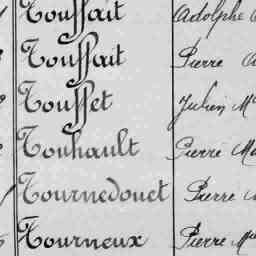 Touffait Adolphe
Touffait Pierre
Touffet Julien M
Touhault Pierre Ma
Tournedouet Pierre
Tourneux Pierre M